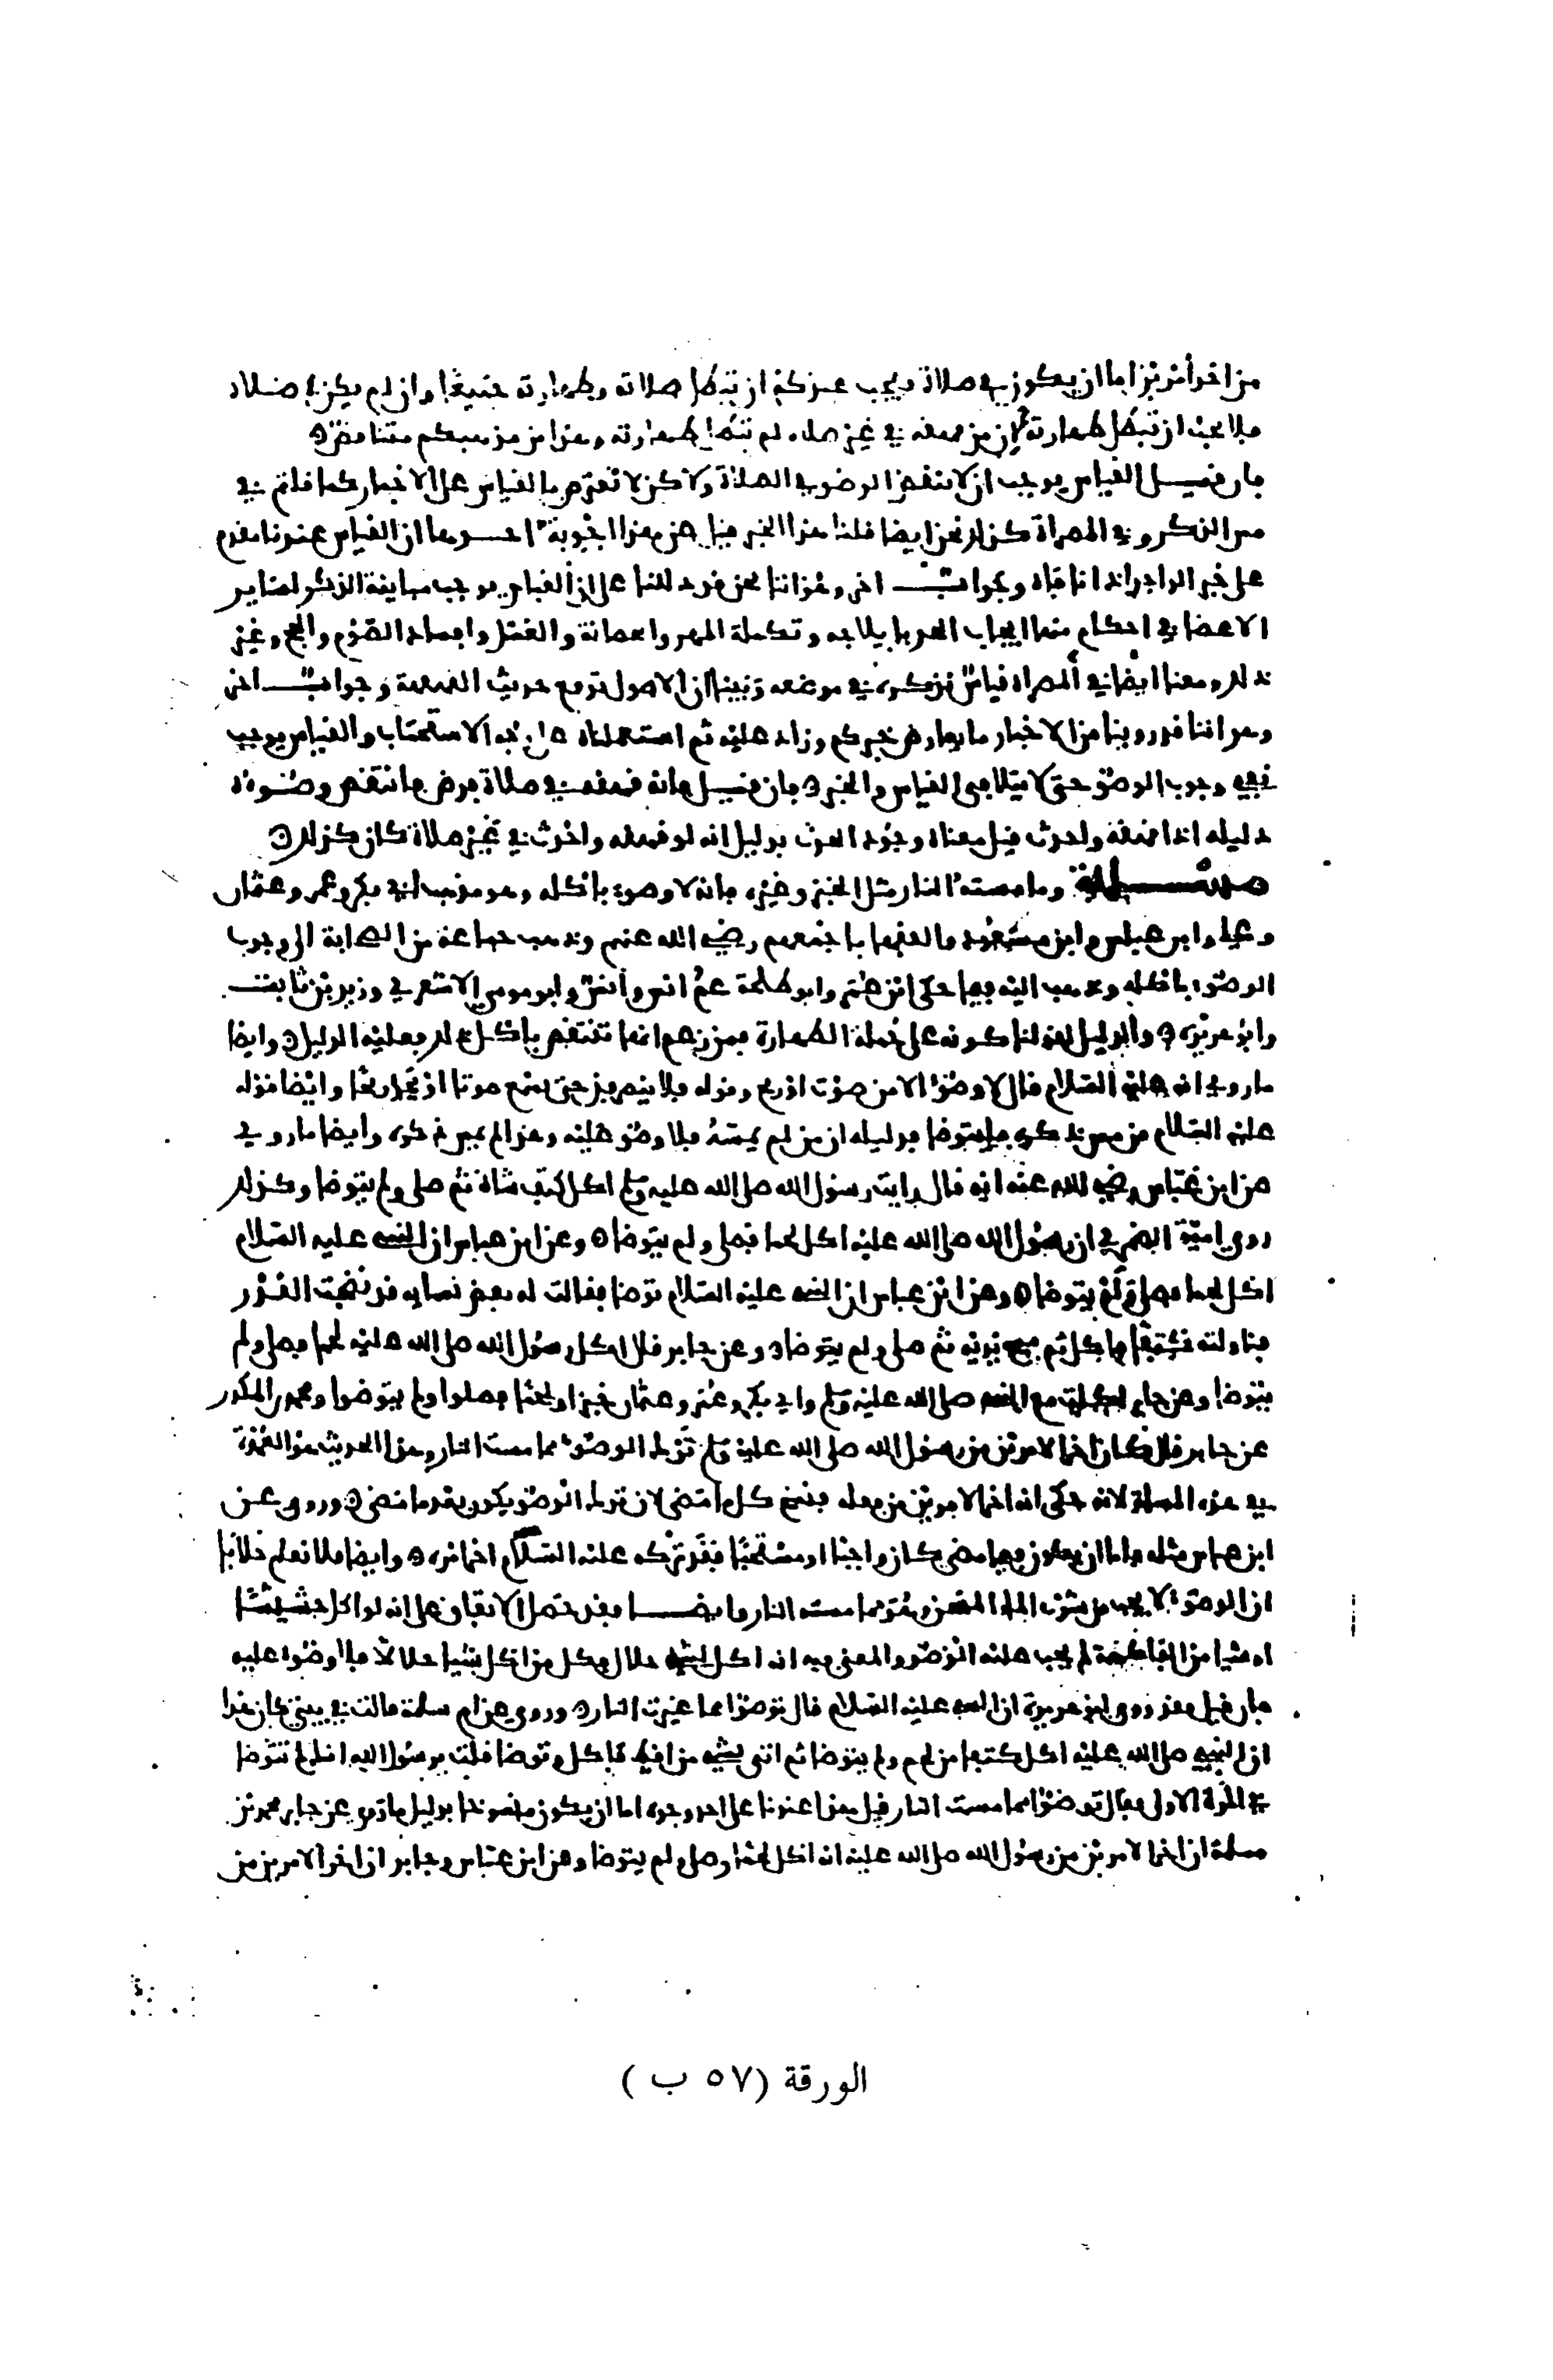 من أخذ أمرين إما أن يكون في صلاة فيجب عندكم أن تبطل صلاته وطهارته جميعًا وإن لم يكن في صلاة
فلا يجب أن تبطل طهارته لأن من قهقه في غير صلاة لم تبطل طهارته وهذا من مذهبكم متناقض
فإن قيل القياس يوجب أن لا ينتقض الوضوء في الصلاة ولاكن لا نعترض بالقياس على الأخبار كما قلتم في
مس الذكر وفي المصراة كذلك نحن أيضا قلنا هذا الخبر فيا هذا أجوبة أحدها أن القياس عندنا مقدم
على خبر الواحد إذا نافاه وجواب آخر وهو أننا نحن قد دللنا على أن القياس يوجب مباينة الذكر لسائر
الأعضاء في أحكام منها إيجاب الحد بإيلاجه وتكملة المهر والحصانة والغسل وإفساد الصوم والحج وغير
ذلك ومعنا أيضا في المصراة قياس نذكره في موضعه وتبينا أن الأصول تدفع حديث القهقهة وجواب آخر
وهو أننا قد روينا من الأخبار ما يعارض خبركم وزاد عليه ثم استعملناه على وجه الاستحباب والقياس يوجب
نفي وجوب الوضوء حتى لا يتلاقى القياس والخبر فإن قيل فإنه قهقه في صلاة فرض فانتقض وضوءه
دليله إذا قهقه وأحدث قيل معناه وجود الحدث بدليل أنه لو قهقه وأحدث في غير صلاة كان كذلك
مسألة وما مسته النار مثل الخبز وغيره فإنه لا وضوء بأكله وهو مذهب أبي بكر وعمر وعثمان
وعلي وابن عباس وابن مسعود والفقهاء بأجمعهم رضي الله عنهم وذهب جماعة من الصحابة إلى وجوب
الوضوء بأكله وذهب إليه فيما حكي ابن عمر وأبو طلحة عم أنس وأنس وأبو موسى الأشعري وزيد بن ثابت
وأبو هريرة والدليل لقولنا كونه على جملة الطهارة فمن زعم أنها تنتقض بأكل فعليه الدليل وأيضا
ما روي أنه عليه السلام قال لا وضوء إلا من صوت أو ريح وقوله فلا ينصرف حتى يسمع صوتا أو يجد ريحا وأيضا قوله
عليه السلام من مس ذكره فليتوضأ فدليله أن من لم يمسه فلا وضوء عليه وهذا لم يمس ذكره وأيضا ما روي
عن ابن عباس رضي الله عنه أنه قال رأيت رسول الله صلى الله عليه وسلم أكل كتف شاة ثم صلى ولم يتوضأ وكذلك
روى أمية الضمري أن رسول الله صلى الله عليه أكل لحما فصلى ولم يتوضأ وعن ابن عباس أن النبي عليه السلام
أكل لحما فصلى ولم يتوضأ وعن ابن عباس أن النبي عليه السلام توضأ فقالت له بعض نسائه قد نضجت القدر
فناولته كتفا فأكل ثم مسح يديه ثم صلى ولم يتوضأ وعن جابر قال أكل رسول الله صلى الله عليه لحما فصلى ولم
يتوضأ وعن جابر أكلت مع النبي صلى الله عليه وسلم وأبي بكر وعمر وعثمان خبزا ولحما فصلوا ولم يتوضوا ومحمد بن المنكدر
عن جابر قال كان آخر الأمرين من رسول الله صلى الله عليه وسلم ترك الوضوء مما مست النار وهذا الحديث هو العمدة
في هذه المسألة لأنه حكى أنه آخر الأمرين من فعله فنسخ كل ما مضى لأن ترك الوضوء يكون بعد ما مضى وروي عن
ابن عباس مثله وإما أن يكون فيما مضى كان واجبا أو مستحبا فقد تركه عليه السلام آخر أمره وأيضا فلا نعلم خلافا
أن الوضوء لا يجب من شرب الماء المسخن وهو مما مسته النار وأيضا فقد حصل الاتفاق على أنه لو أكل حشيشا
أو شيا من الفاكهة لم يجب عليه الوضوء والمعنى فيه أنه أكل شيا حلال فكل من أكل شيا حلالا فلا وضوء عليه
فإن قيل فقد روى أبو هريرة أن النبي عليه السلام قال توضوا مما غيرت النار وروي عن أم سلمة قالت في بيتي كان هذا
أن النبي صلى الله عليه أكل كتفا من لحم ولم يتوضأ ثم أتي بشيء من أقط فأكل وتوضأ فقلت يرسول الله أفلم لم تتوضأ
في المرة الأولى فقال توضوا مما مست النار قيل هذا عندنا على أحد وجوه إما أن يكون منسوخا بدليل ما روي عن جابر ومحمد بن
مسلمة أن آخر الأمرين من رسول الله صلى الله عليه أنه أكل لحما وصلى ولم يتوضأ وعن ابن عباس وجابر أن آخر الأمرين من
الورقة (٥٧ ب)